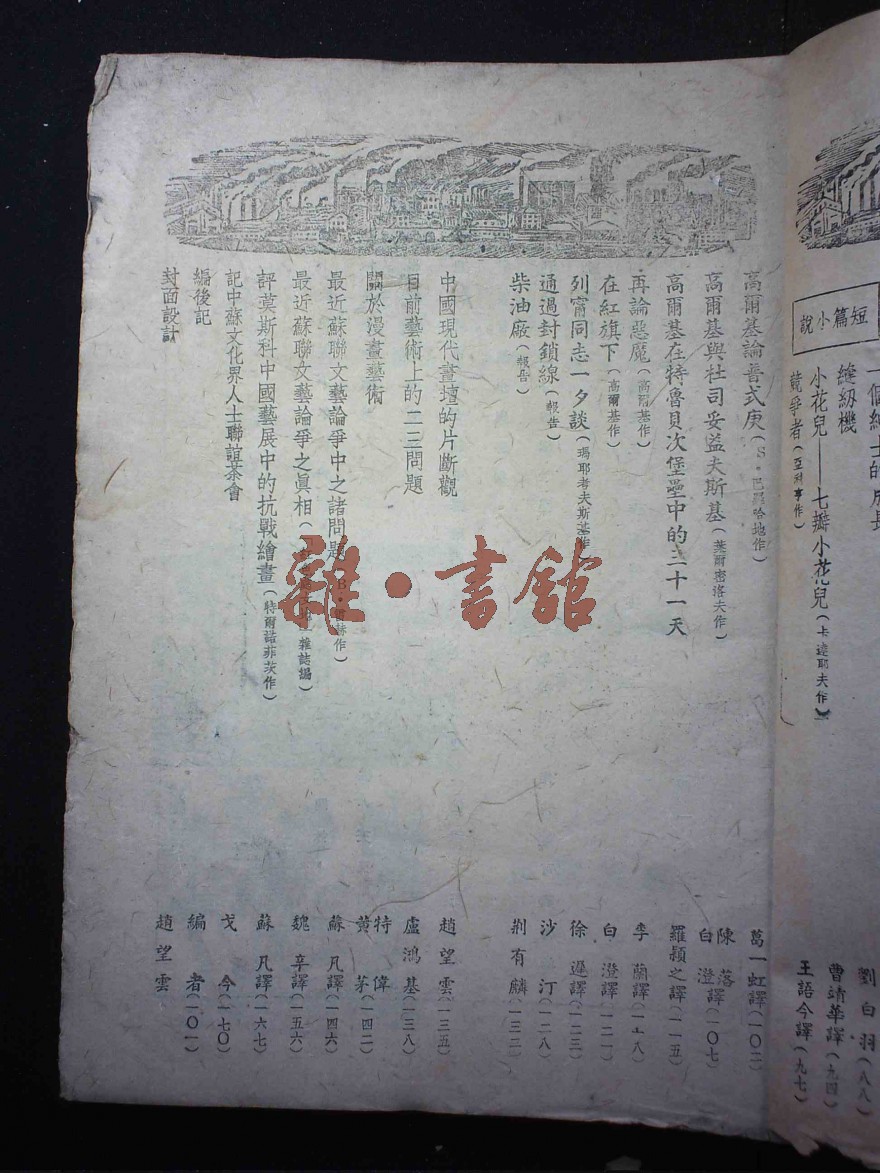 短篇小說
縫紉機
劉白羽(八八)
小花兒——七瓣小花兒(卡達耶夫作)
曹靖華譯(九四)
競爭者(亞利事作)
王語今譯(九七)
高爾基論普式庚(S·巴羅哈地作)
葛一虹譯(一〇二)
高爾基與杜司妥益夫斯基(葉爾密洛夫作)
陳落
白澄譯(一〇七)
高爾基在特魯貝次堡壘中的三十一天
羅潁之譯(一一五)
再論惡魔(高爾基作)
李蘭譯(一一八)
在紅旗下(高爾基作)
白澄譯(一二一)
列甯同志一夕談(瑪耶考夫斯基作)
徐遲譯(一二三)
通過封鎖線(報告)
沙汀(一二八)
柴油廠(報告)
荆有麟(一三二)
中國現代畫壇的片斷觀
趙望雲(一三五)
目前藝術上的二三問題
盧鴻基(一三八)
關於漫畫藝術
特偉
黃茅(一四二)
最近蘇聯文藝論爭中之諸問題
蘇凡譯(一四六)
最近蘇聯文藝論爭之眞相
雜誌揭)
魏辛譯(一五六)
評莫斯科中國藝展中的抗戰繪畫(特爾諾菲茨作)
蘇凡譯(一六七)
記中蘇文化界人士聯誼茶會
戈今(一七〇)
編後記
編者(一〇一)
封面設計
趙望雲
雜·書館